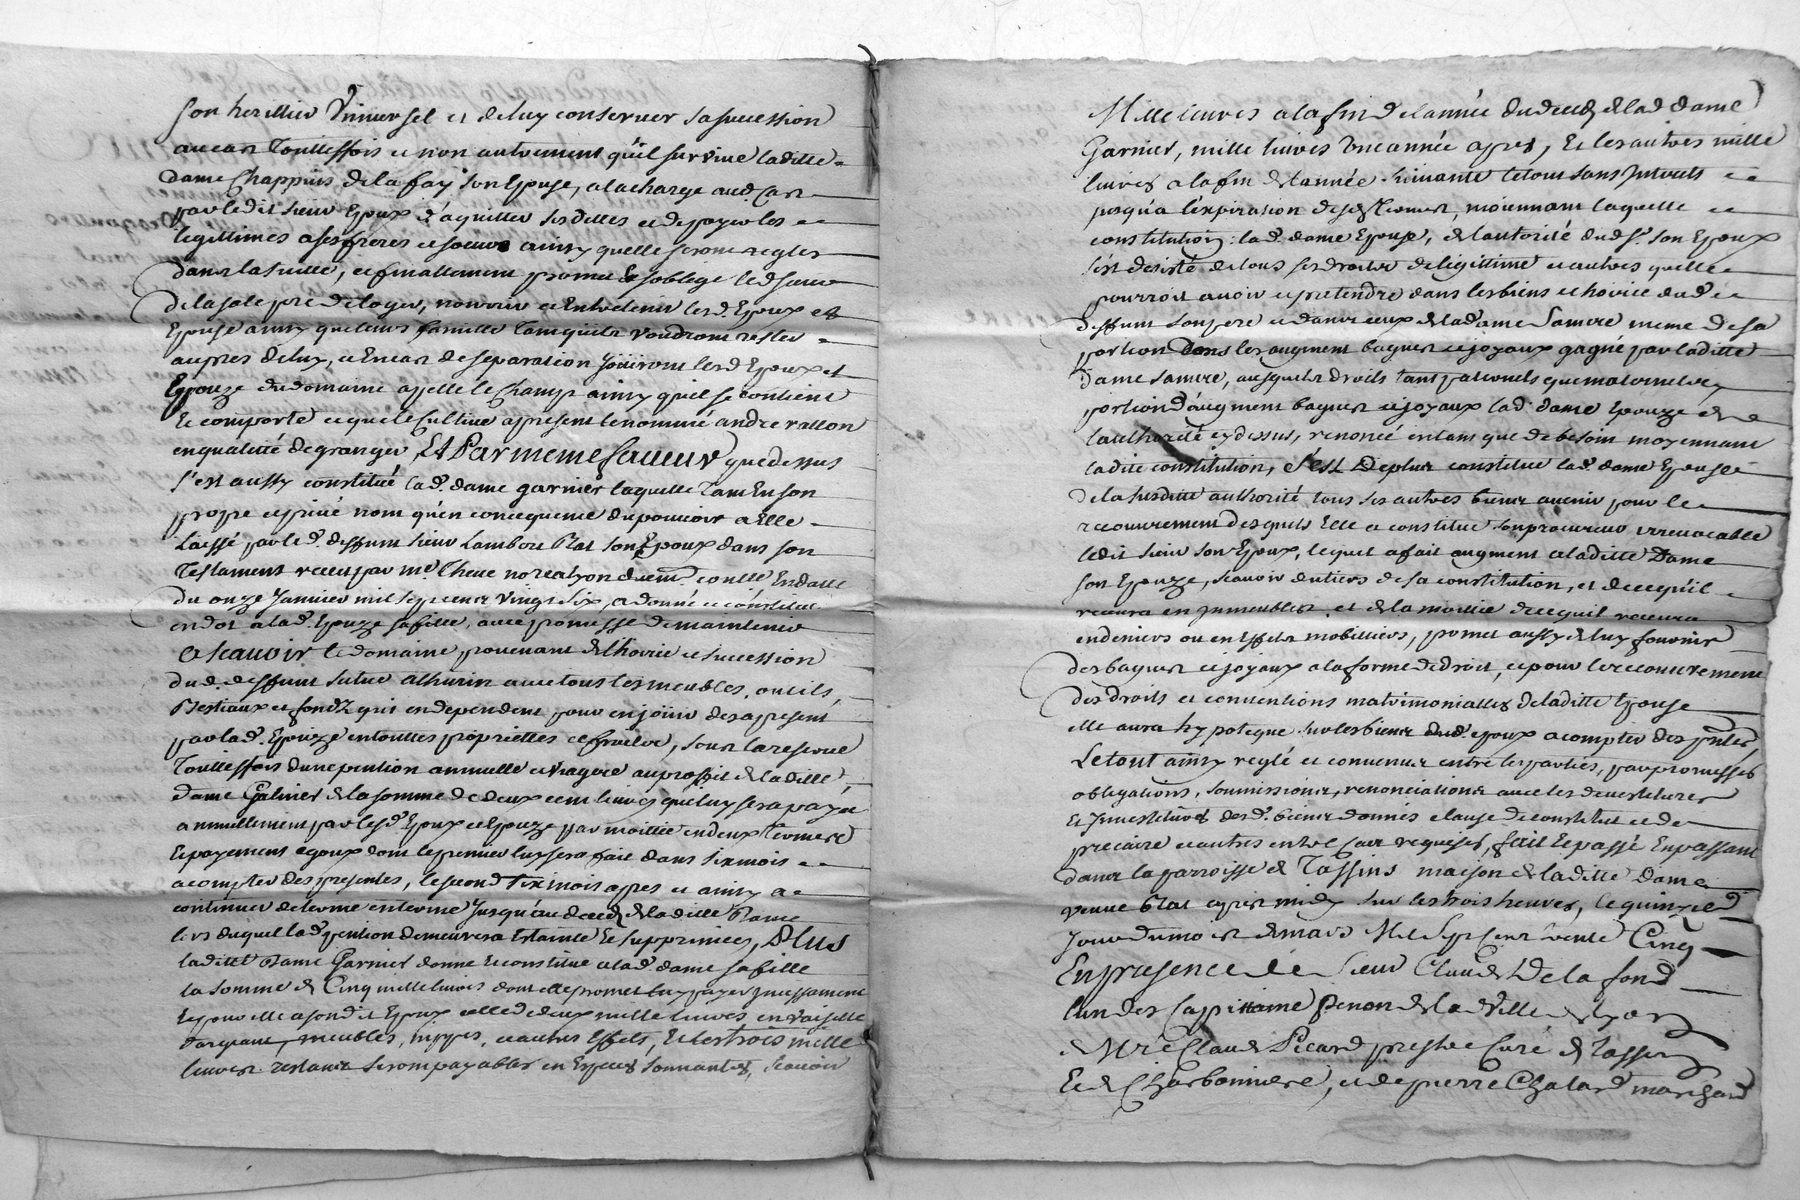 son heritier Vniuersel et deluy conseruer sa succession
aucas Touttesfois et non autrement qu'il suruiue laditte
dame Chappuis delafay son Epouse, alacharge aud. Cas
par ledit sieur Epoux d'aquitter ses dettes et de payer les
legittimes a ses freres et soeurs ainsy quelle seront regles
dans la suitte, et finallement promet et s'oblege led. sieur
de la sale pere de loger, nourrir et Entretenir lesd. Epoux et
Epouse ainsy que leurs famille tant quils voudront rester
aupres de luy, et En cas de separation Joüiront lesd Epoux et
Epouze du domaine appellé le Champ ainsy quil se contient
Et comporte et que le Cultiue apresent le nommé andré vallon
en qualitté de granger, Et Par meme faueur que dessus
s'est aussy constitué lad. dame garnier laquelle Tant En son
propre et priué nom qu'en consequence du pouuoir a Elle
Laissé par led. deffunt sieur Lambert Plat son Epoux dans son
Testament receu par me. Cheue no.re a Lyon En datte
du onze Januier mil sept cent vingt six, a donné et constitué
en dot alad. Epouze sa fille, auec promesse de maintenir
A scauoir le domaine prouenant de l'hoirie et succession
dud. deffunt situé a auec tous les meubles, outils,
Bestiaux et fondz qui en dependent pour en joüir des apresent
par lad. Epouze en touttes proprietés et fruits, sous la reserue
Touttesfois d'une pention annuelle et viagere au proffit de laditte
dame Garnier de la somme de deux cent liures qui luy sera payée
annuellement par lesd. Epoux et Epouze par moittié en deux Termes
Et payement egaux dont le premier luy sera fait dans six mois
a compter des presentes, le second six mois apres et ainsy a
continuer de terme en terme Jusqu'au deced de laditte Dame
lors duquel lad. pention demeurera Esteinte Et supprimée, Plus
laditte Dame Garnier donne Et constitue alad. dame sa fille
la somme de Cinq mille liures dont elle promet luy payer Incessament
Et pour elle a sond. Epoux celle de deux mille liures en vaisselle
d'argent, meubles, nippes, et autres Effets, Et les trois mille
liures restants seront payables en Especes sonnantes, scauoir
Mille liures a la fin de l'année du deced de lad. dame
Garnier, mille liures vne année apres, Et les autres mille
liures a la fin de l'année suiuante le tout sans Interets
jusqu'a l'expiration desd. Termes, moiennant laquelle
constitution lad. dame Epouse, de l'autorité dud. s.r son Epoux
s'est desisté de tous ses droits de legittime et autres quelle
pourroit auoir et pretendre dans les biens et hoirie dud.
deffunt son pere et dans ceux de lad. dame sa mere meme de sa
portion Dans les augment bagues et joyaux gagné par laditte
dame sa mere, ausquels droits tant paternels que maternels,
portion d'augment bagues et joyaux lad. dame Epouze de
l'authorité cy dessus, renoncé en tant que de besoin moyennant
ladite constitution, s'Est Deplus constitué lad. dame Epouse
de la susditte authorité tous ses autres biens auenir pour le
recouurement desquels Elle a constitué son procureur irreuocable
ledit sieur son Epoux, lequel a fait augment a laditte Dame
son Epouze, scauoir du tiers de sa constitution, et de ce qu'il
receura en Immeubles, et de la moitié de ce quil receura
en deniers ou en Effets mobilliers, promet aussy de luy fournir
des bagues et joyaux a la forme de droit, et pour le recouurement
des droits et conuentions matrimonialles de laditte Epouse
elle aura hypoteque sur les biens dud. epoux a compter des p.ntes,
Le tout ainsy reglé et conuenu entre les parties, par promesses
obligations, soumissions, renonciations auec les deuestitures
Et Inuestitures desd. biens donnés clause de constitut et de
precaire et autres en tel cas requises, fait Et passé
dans la parroisse de Tassins maison de laditte Dame
veuue Plat apres midy sur les trois heures, le quinzie.
Jour du mois de mars Mil Sept Cent trente Cinq
En presence de Sieur Claude Delafond
l'un des Capittaine penon de la Ville de Lyon
de M.re Claude Picard prestre Curé de Tassin
Et de Charbonniere, et de pierre Chalard marchand